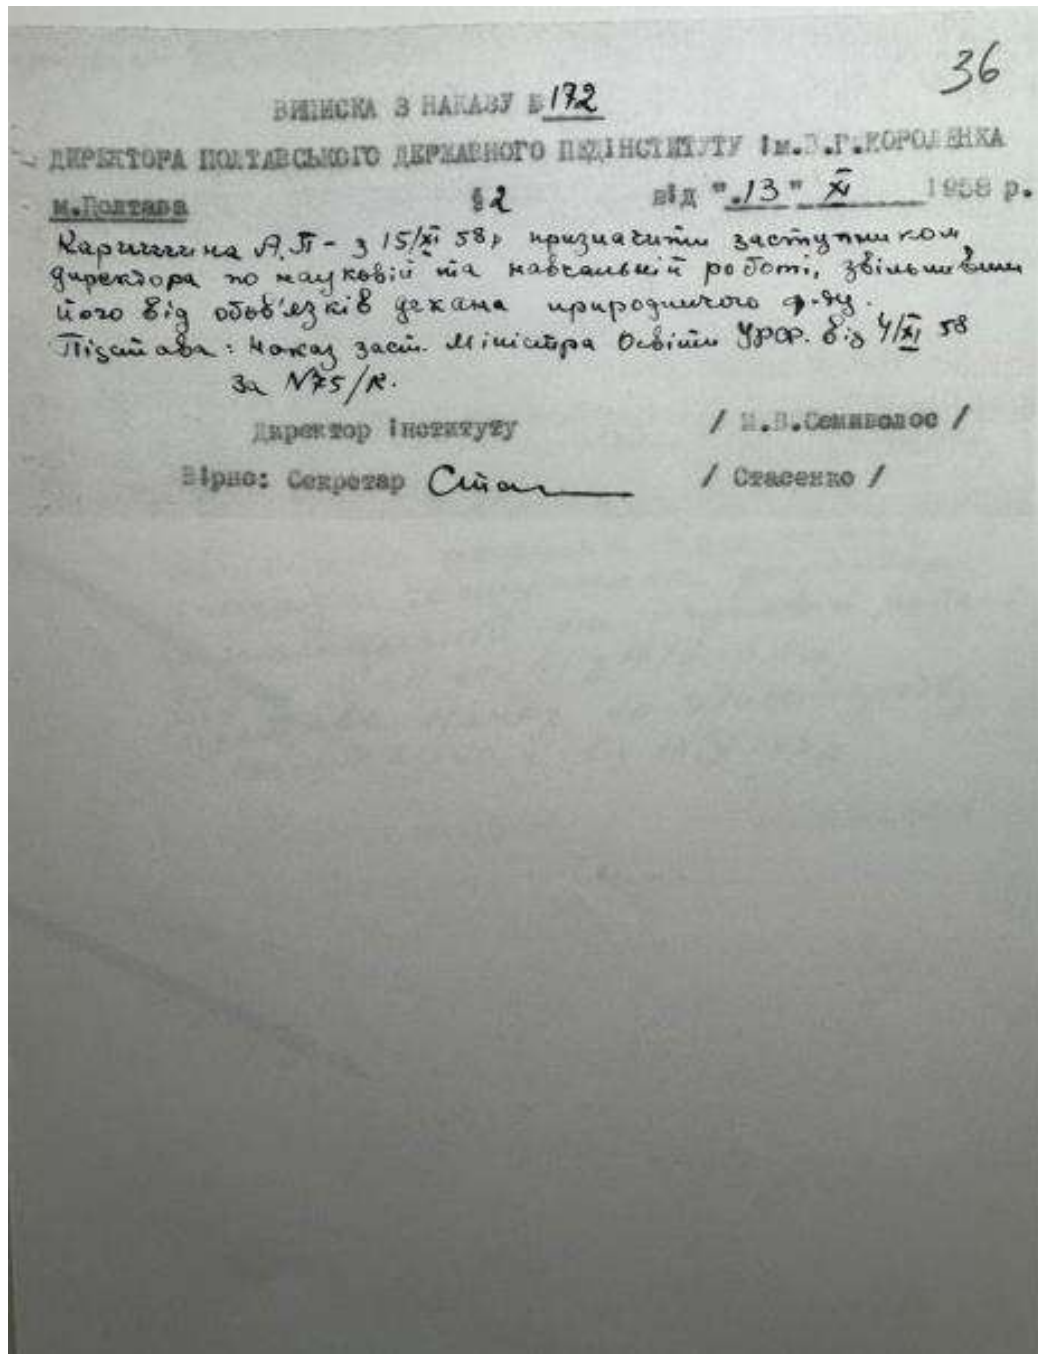 36
ВИПИСКА З НАКАЗУ № 172
ДИРЕКТОРА ПОЛТАВСЬКОГО ДЕРЖАВНОГО ПЕДІНСТИТУТУ ім.В.Г.КОРОЛЕНКА
м.Полтава §2 від "13" XI 1958 р.
Каришина А.П - з 15/XI 58р призначити заступником
директора по науковій та навчальній роботі, звільнивши
його від обов'язків декана природничого ф-ту.
Підстава: Наказ заст. Міністра Освіти УРСР. від 4/XI 58
За №75/к.
Директор інституту / М.В.Семиволос /
Вірно: Секретар / Стасенко /